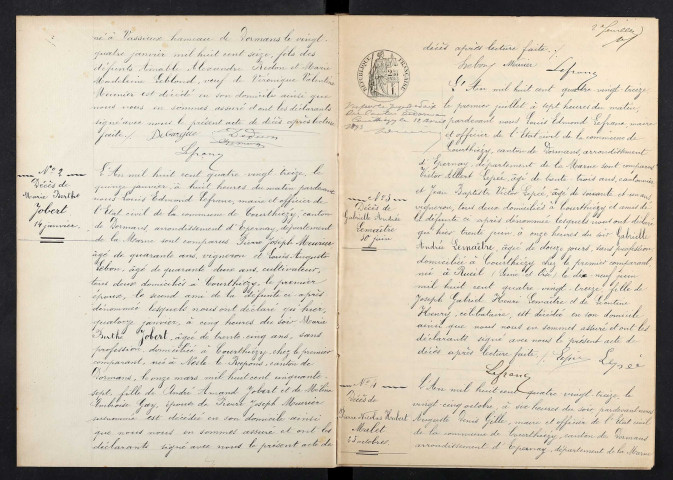 né à Vassieux hameau de Dormans le vingt-
quatre janvier mil huit cent seize, fils des
défunts Amable Alexandre Nedon et Marie
Madeleine Leblond, veuf de Véronique Valentine
Meunier est décédé en son domicile ainsi que
nous nous en sommes assuré et ont les déclarants
signé avec nous le présent acte de décès après lecture
faite.
Lefranc
N° 2
Décès de
Marie Berthe
Jobert
14 janvier
L'An mil huit cent quatre vingt treize, le
quinze janvier, à huit heures du matin pardevant
nous Louis Edmond Lefranc, maire et officier de
l'état civil de la commune de Courthiézy, canton
de Dormans, arrondissement d'Epernay, département
de la Marne sont comparus Pierre Joseph Meunier
âgé de quarante ans, vigneron et Louis Auguste
Lebon, âgé de quarante deux ans, cultivateur,
tous deux domiciliés à Courthiézy, le premier
époux, le second ami de la défunte ci-après
dénommée lesquels nous ont déclaré qu'hier,
quatorze janvier, à cinq heures du soir Marie
Berthe Jobert, âgée de trente cinq ans, sans
profession, domiciliée à Courthiézy, chez le premier
comparant, née à Nesle le Repons, canton de
Dormans, le onze mars mil huit cent cinquante
sept, fille de Armand Jobert et de
Gay, épouse de Pierre Joseph Meunier
susnommé est décédée en son domicile ainsi
que nous nous en sommes assuré et ont les
déclarants signé avec nous le présent acte de
décès après lecture faite.
Lebon Meunier Lefranc
RÉPUBLIQUE FRANÇAISE
N° 3
Décès de
Gabrielle Andrée
Lemaître
30 juin
L'An mil huit cent quatre vingt treize,
le premier juillet à sept heures du matin,
pardevant nous Louis Edmond Lefranc, maire
et officier de l'état civil de la commune de
Courthiézy, canton de Dormans, arrondissement
d'Epernay, département de la Marne sont comparus
Victor Albert Lepée, âgé de trente trois ans, cantonnier
et Jean Baptiste Victor Lepée, âgé de soixante et un ans,
vigneron, tous deux domiciliés à Courthiézy et amis de
la défunte ci après dénommée lesquels nous ont déclaré
qu'hier trente juin, à onze heures du soir Gabrielle
Andrée Lemaître, âgée de douze jours, sans profession
domiciliée à Courthiézy, chez le premier comparant,
née à Rueil (Seine et Oise) le dix neuf juin
mil huit cent quatre vingt treize, fille de
Joseph Gabriel Henri Lemaître et de
Henry, célibataire, est décédée en son domicile
ainsi que nous nous en sommes assuré et ont les
déclarants signé avec nous le présent acte de
décès après lecture faite. Lepée Lepée
Lefranc
N° 4
Décès de
Malet
25 octobre
L'An mil huit cent quatre vingt treize, le
vingt cinq octobre, à heures du soir pardevant nous
Auguste Louis Gille, maire et officier de l'état civil
de la commune de Courthiézy, canton de Dormans
arrondissement d'Epernay, département de la Marne